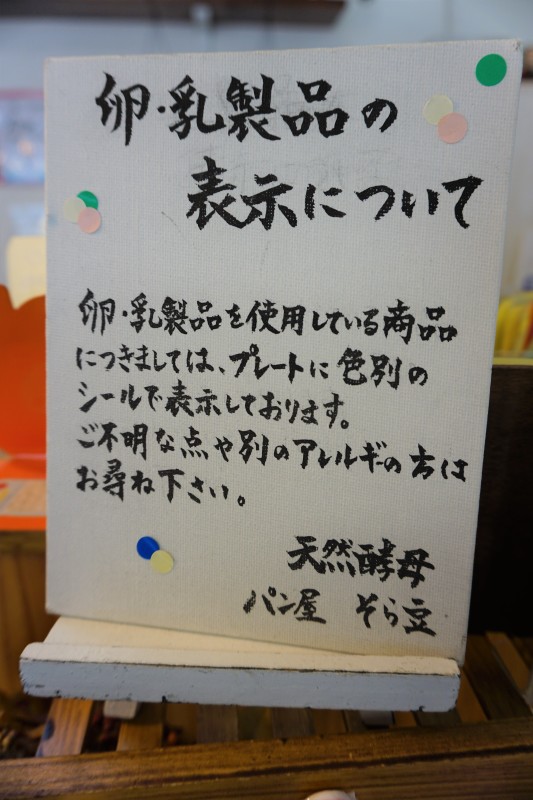 卵・乳製品の
表示について
卵・乳製品を使用している商品
につきましては、プレートに色別の
シールで表示しております。
ご不明な点や別のアレルギーの方は
お尋ね下さい。
天然酵母
パン屋 そら豆